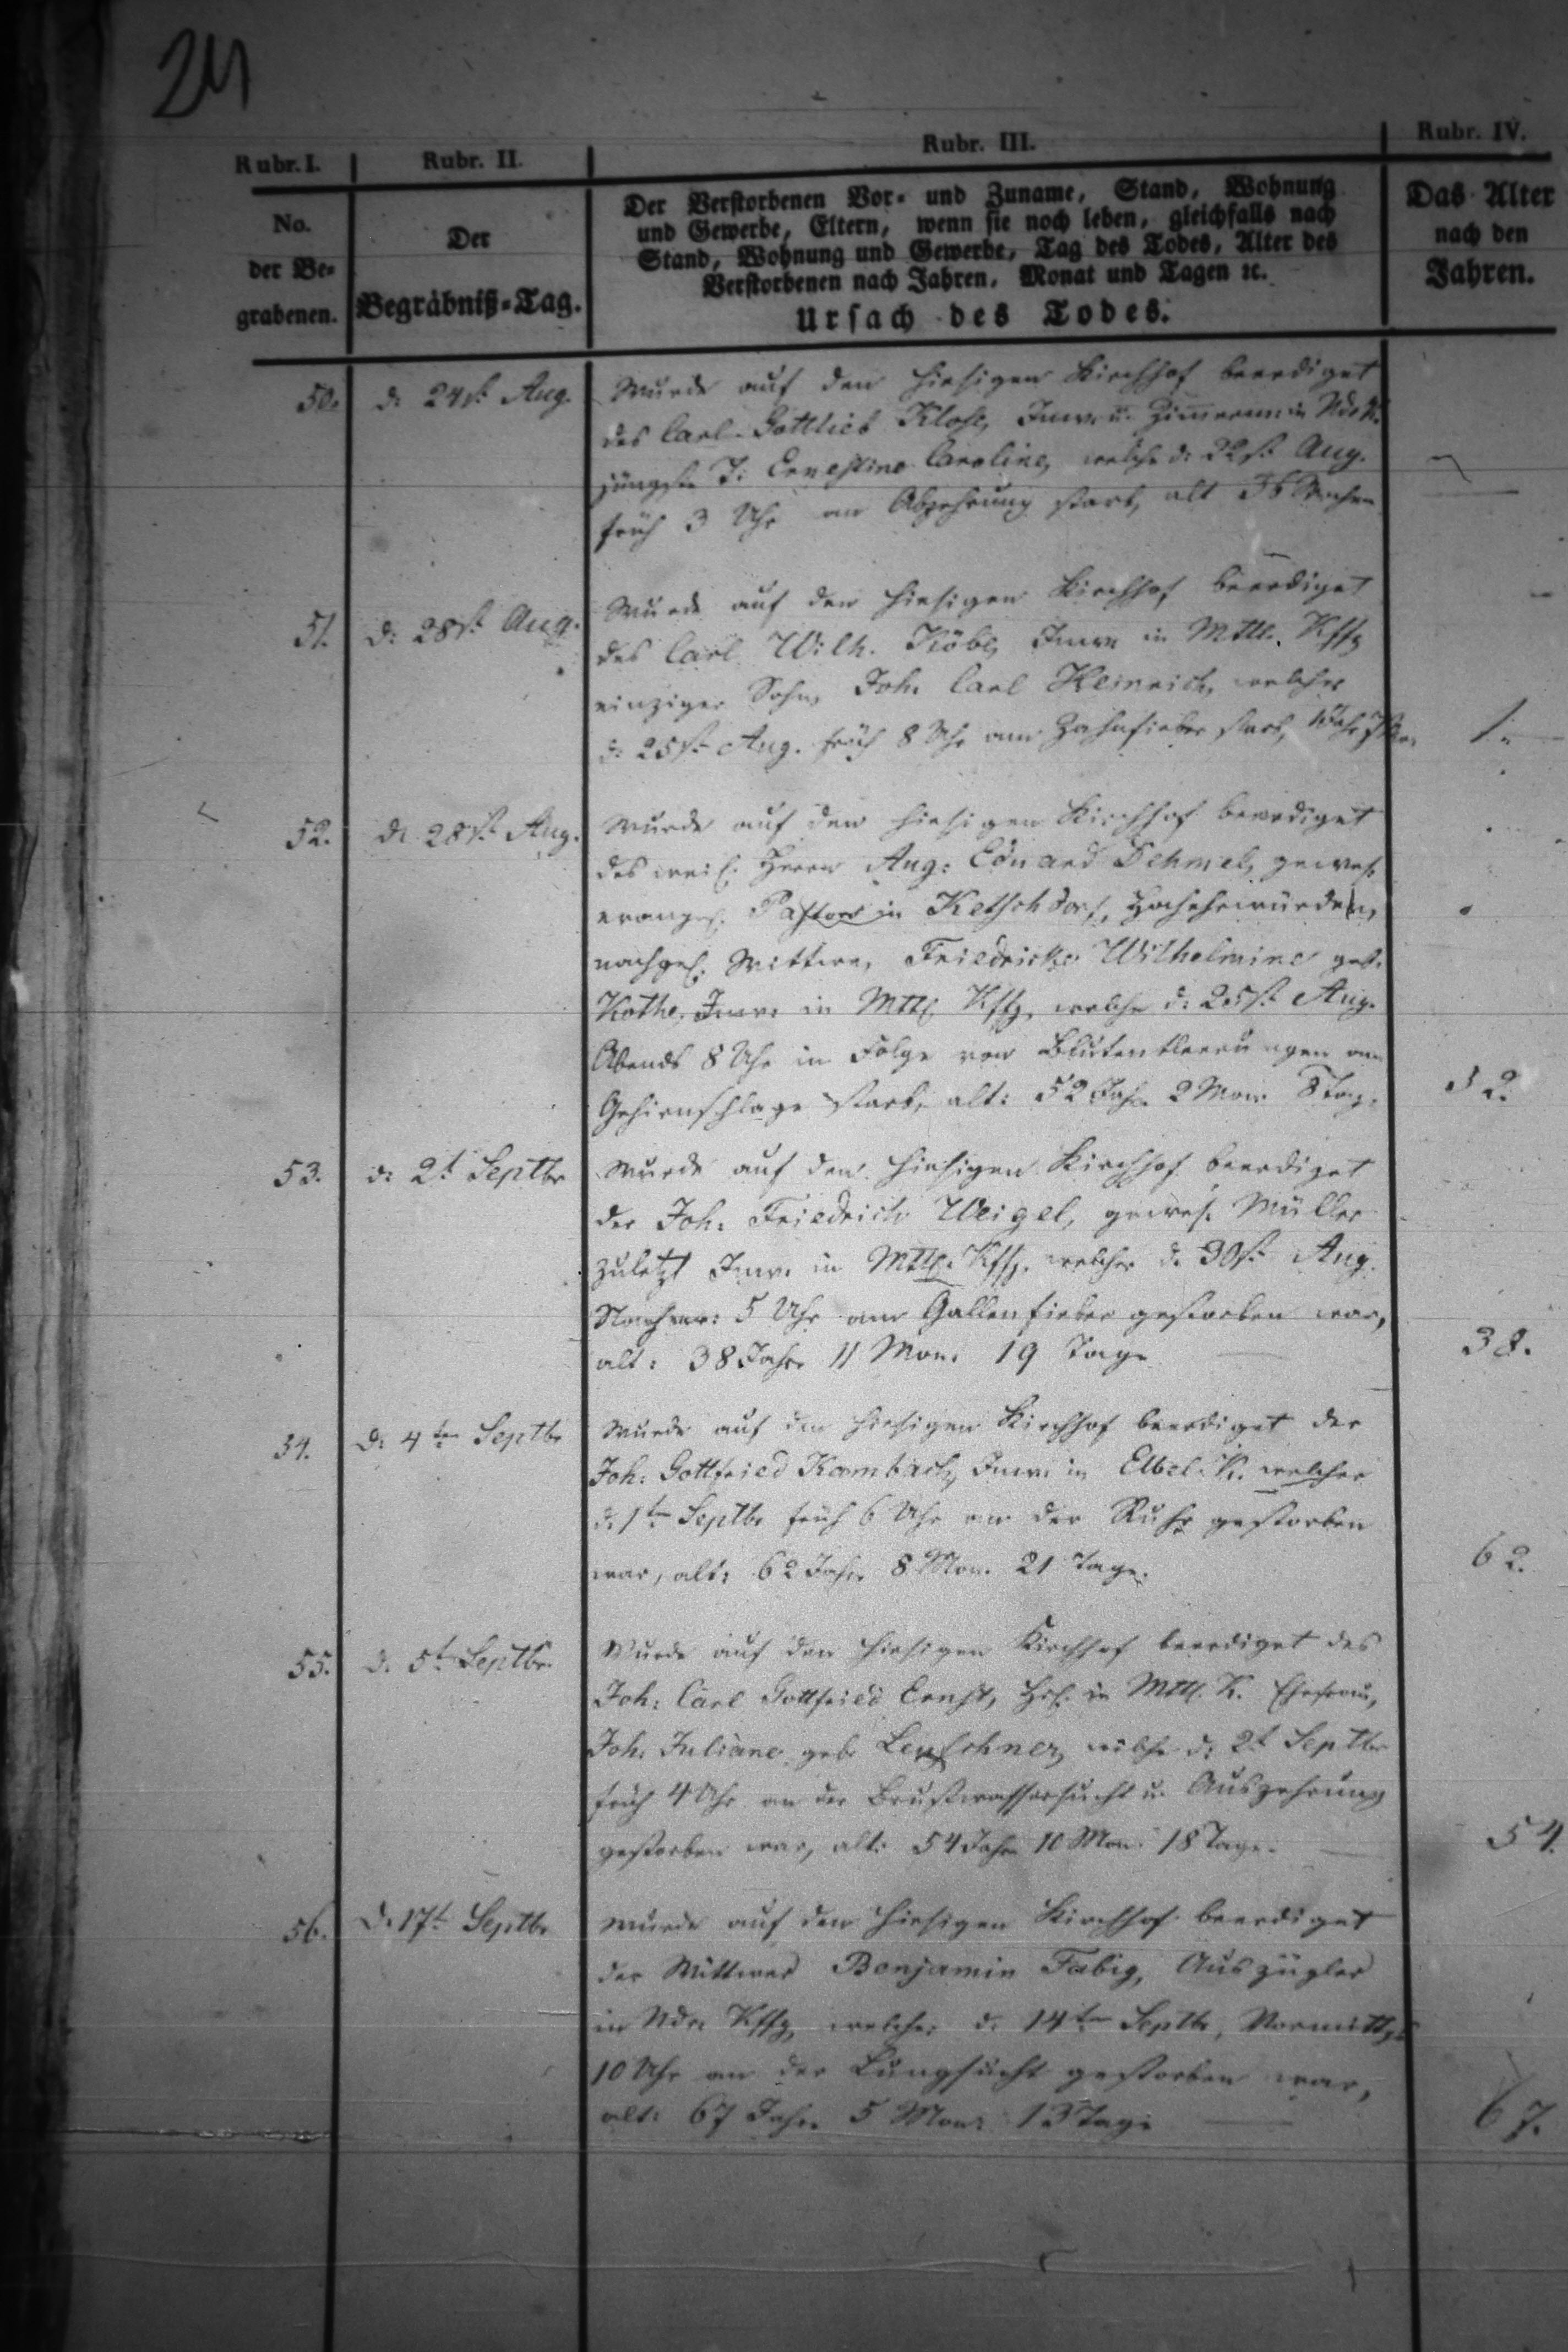 24
Rubr. I. Rubr. II. Rubr. III. Rubr. IV.
No.
der Be-
grabenen.
Der
Begräbniß-Tag.
Der Verstorbenen Vor- und Zuname, Stand, Wohnung
und Gewerbe, Eltern, wenn sie noch leben, gleichfalls nach
Stand, Wohnung und Gewerbe, Tag des Todes, Alter des
Verstorbenen nach Jahren, Monat und Tagen ꝛc.
Ursach des Todes.
Das Alter
nach den
Jahren.
50. d: 24st Aug. Wurde auf den hiesigen Kirchhof beerdiget
des Carl Gottlieb Klose, Inw. u. Zimmerm: in Ndr K.
jüngste T: Ernestine Caroline, welche d: 22st Aug.
früh 3 Uhr an Abzehrung starb, alt Wochen
51. d: 28st Aug. Wurde auf den hiesigen Kirchhof beerdiget
des Carl Wilh. Inw. in Mttl. Kffg
einziger Sohn, Joh. Carl Heinrich, welcher
d: 25st Aug. früh 8 Uhr am Zahnfieber starb, 1.
52. d. 28st Aug. Wurde auf den hiesigen Kirchhof beerdiget
des weil. Herrn Aug: Eduard Dehmel, gewes.
evangel. Pastors in Ketschdorf, Hochehrwürden,
nachgel. Wittwe, Friedricke Wilhelmine geb.
Kothe, Inw. in Mttl Kffg, welche d: 25st Aug.
Abends 8 Uhr in Folge von Blutentleerungen am
Gehirnschlage starb, alt: 52 Jahr 2 Mon. 8 Tag. 52.
53. d: 2t Septbr Wurde auf den hiesigen Kirchhof beerdiget
der Joh: Friedrich Weigel, gewes. Müller
zuletzt Inw. in Mttl. Kffg. welcher d. 30st Aug.
Nachm: 5 Uhr am Gallenfieber gestorben war,
alt: 38 Jahr 11 Mon. 19 Tage 38.
54. d: 4ten Septbr Wurde auf den hiesigen Kirchhof beerdiget der
Joh: Gottfried Kambach, Inw. in Elbel-K. welcher
d. 1ten Septbr früh 6 Uhr an der Ruhr gestorben
war, alt: 62 Jahr 8 Mon. 21 Tage. 62.
55. d. 5t Septbr. Wurde auf den hiesigen Kirchhof beerdiget des
Joh: Carl Gottfried Ernst, Hsl. in Mttl. K. Ehefrau,
Joh. Juliane geb. Leuschner, welche d: 2t Septbr
früh 4 Uhr an der Brustwassersucht u. Auszehrung
gestorben war, alt: 54 Jahr 10 Mon. 18 Tage. 54.
56. d. 17t Septbr Wurde auf den hiesigen Kirchhof beerdiget
der Wittwer Benjamin Fabig, Auszügler
in Ndr Kffg, welcher d. 14ten Septbr, Vormittgs
10 Uhr an der Lungsucht gestorben war,
alt: 67 Jahr 5 Mon: 13 Tage 67.